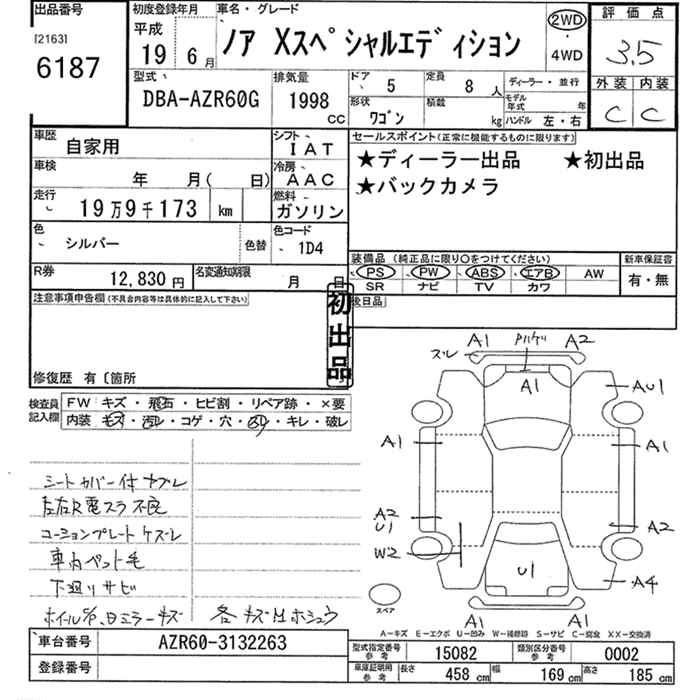 出品番号 初度登録年月 車名・グレード 評価点
[2163] 平成
6187 19年 6月 ノア Xスペシャルエディション 2WD・4WD 3.5
型式 排気量 ドア 5 定員 8人 ディーラー・並行 外装 内装
DBA-AZR60G 1998CC 形状 ワゴン 積載 kg モデル年式 年 ハンドル 左・右 C C
車歴 自家用 シフト IAT セールスポイント(正常に機能するものに限ります)
車検 年 月( 日) 冷房 AAC ★ディーラー出品 ★初出品
走行 19万9千173 km 燃料 ガソリン ★バックカメラ
色 シルバー 色替 色コード 1D4
装備品(純正品に限り○をつけてください) 新車保証書
R券 12,830円 名変通知期限 月 日 PS PW ABS エアB AW 有・無
SR ナビ TV カワ
注意事項申告欄(不具合内容等は具体的に記入して下さい) 後日品
初出品
修復歴 有〔箇所
検査員記入欄 FW キズ・飛石・ヒビ割・リペア跡・×要
内装 キズ・汚レ・コゲ・穴・スレ・キレ・破レ
シートカバー付 ケズレ
左右R電スラ不良
コーションプレートケズレ
車内ペット毛
下廻リサビ
ホイールC/P、日ミラーキズ 各キズUホシュウ
A1 Pハゲリ A2
スレ
A1
AU1
A1 A1
A2
U1 A2
W2
U1 A4
スペア A1 A1
A−キズ E−エクボ U−凹み W−補修跡 S−サビ C−腐食 XX−交換済
車台番号 AZR60-3132263 型式指定番号 参考 15082 類別区分番号 参考 0002
登録番号 車庫証明用 参考 長さ 458cm 幅 169cm 高さ 185cm